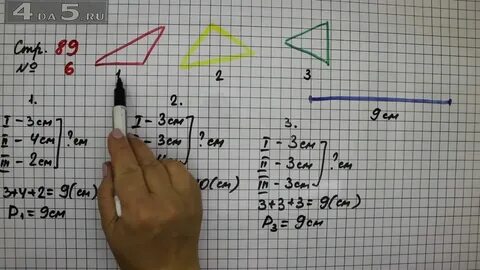 4 DA 5 .RU
Стр. 89
№ 6
1
2
3
9 см
1.
I - 3 см
II - 4 см
III - 2 см
? см
3+4+2=9(см)
P₁ = 9 см
2.
I - 3 см
- 3 см
- 4 см
? см
0(см)
3.
I - 3 см
II - 3 см
III - 3 см
? см
3+3+3=9(см)
P₃ = 9 см